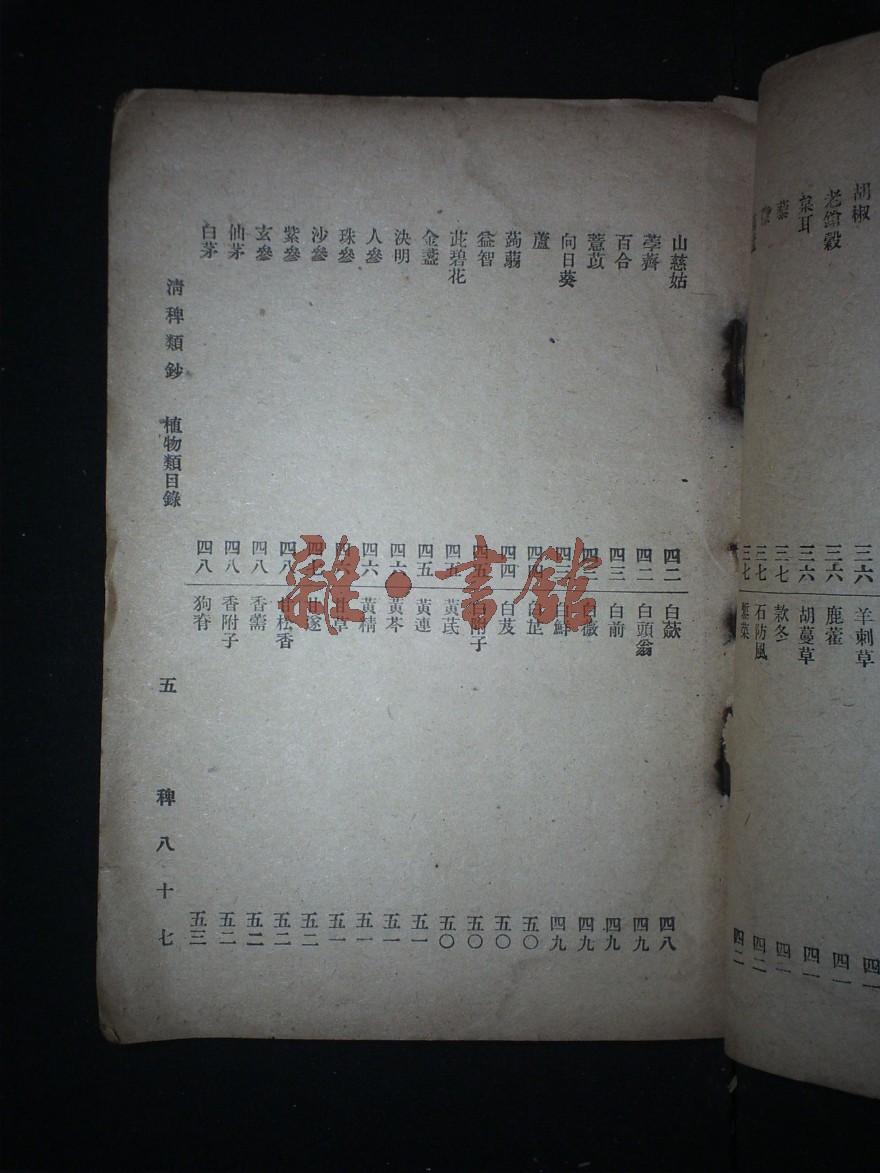 胡椒 三六 羊刺草 四一
老鎗穀 三六 鹿藿 四一
葈耳 三六 胡蔓草 四一
藜 三七 款冬
三七 石防風 四二
三七 四二
山慈姑 四二 白蘞 四八
荸薺 四二 白頭翁 四九
百合 四三 白前 四九
薏苡 四三 白薇 四九
向日葵 四三 白鮮 四九
蘆 四四 白芷 五〇
蒟蒻 四四 白芨 五〇
益智 四五 白附子 五〇
茈碧花 四五 黃芪 五〇
金盞 四五 黃連 五一
決明 四六 黃芩 五一
人參 四六 黃精 五一
珠參 四六 甘草 五一
沙參 四七 甘遂 五二
紫參 四八 甘松香 五二
玄參 四八 香薷 五二
仙茅 四八 香附子 五二
白茅 四八 狗脊 五三
清稗類鈔 植物類目錄 五 稗八十七
雜·書館